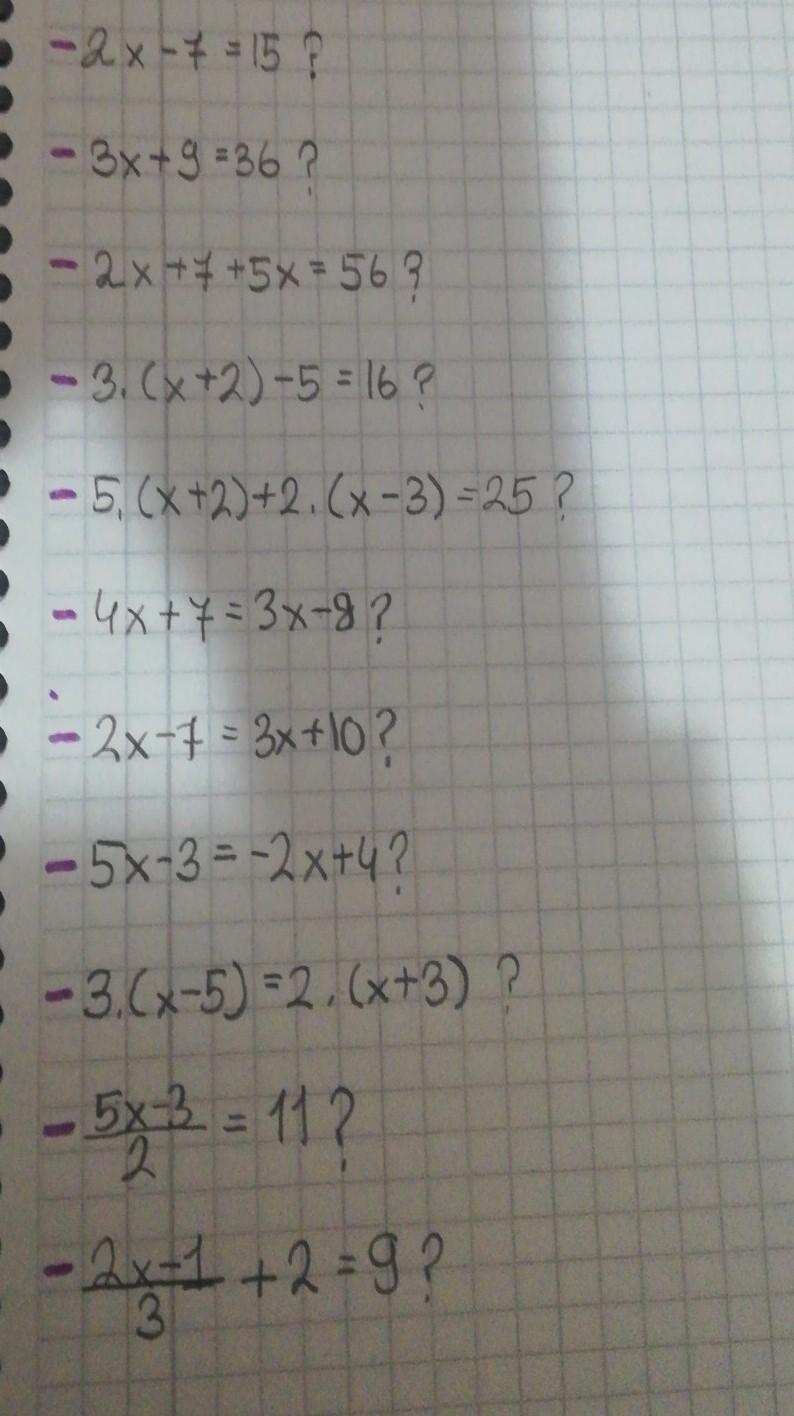 - 2x-7=15?
- 3x+9=36?
- 2x+7+5x=56?
- 3.(x+2)-5=16?
- 5.(x+2)+2.(x-3)=25?
- 4x+7=3x-8?
- 2x-7=3x+10?
- 5x-3=-2x+4?
- 3.(x-5)=2.(x+3) ?
- 5x-3/2=11?
- 2x-1/3+2=9?